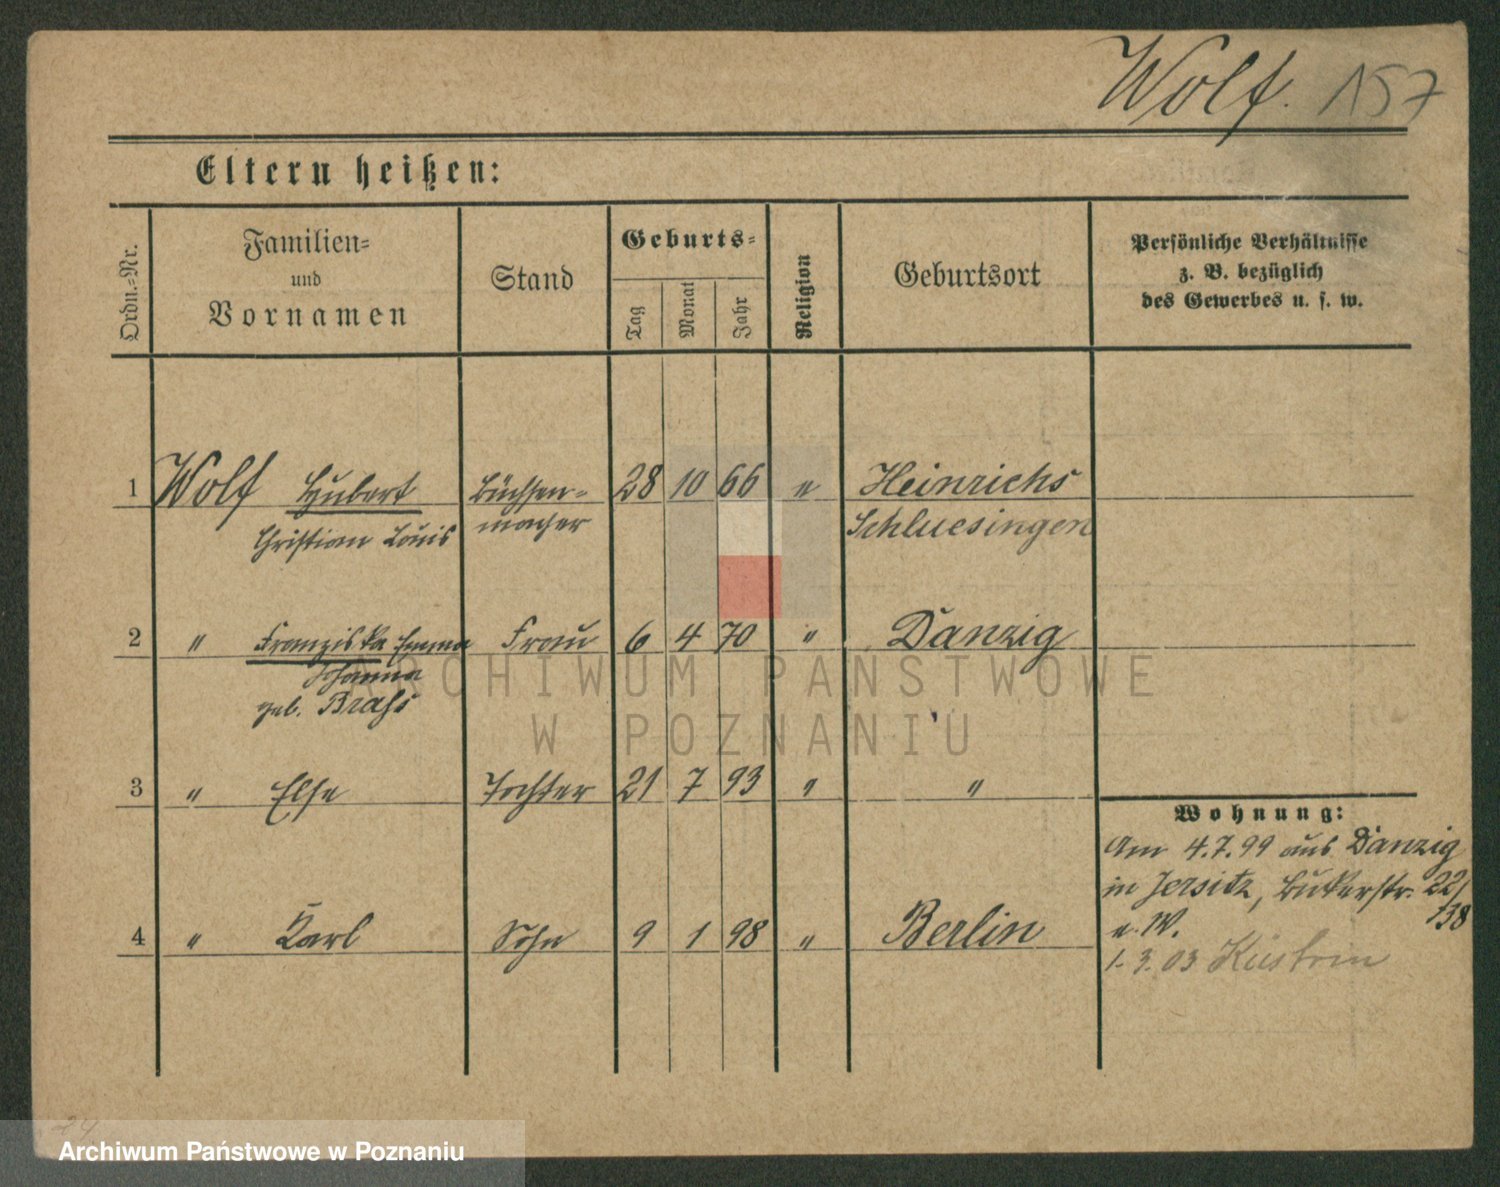 Wolf. 157
Eltern heißen:
Ordn.-Nr.
Familien-
und
Vornamen
Stand
Geburts-
Tag
Monat
Jahr
Religion
Geburtsort
Persönliche Verhältnisse
z. B. bezüglich
des Gewerbes u. s. w.
1 Wolf Hubert Büchsen- 28 10 66 e Heinrichs
Christian Louis macher Schluesingen
2 " Franziska Emma Frau 6 4 70 " Danzig
Johanna
geb. Brahs
3 " Else Tochter 21 7 93 " "
Wohnung:
Am 4.7.99 aus Danzig
in Jersitz, Bukerstr. 22/
138
4 " Karl Sohn 9 1 98 " Berlin
e. W.
1. 3. 03 Küstrin
24
ARCHIWUM PAŃSTWOWE
W POZNANIU
Archiwum Państwowe w Poznaniu